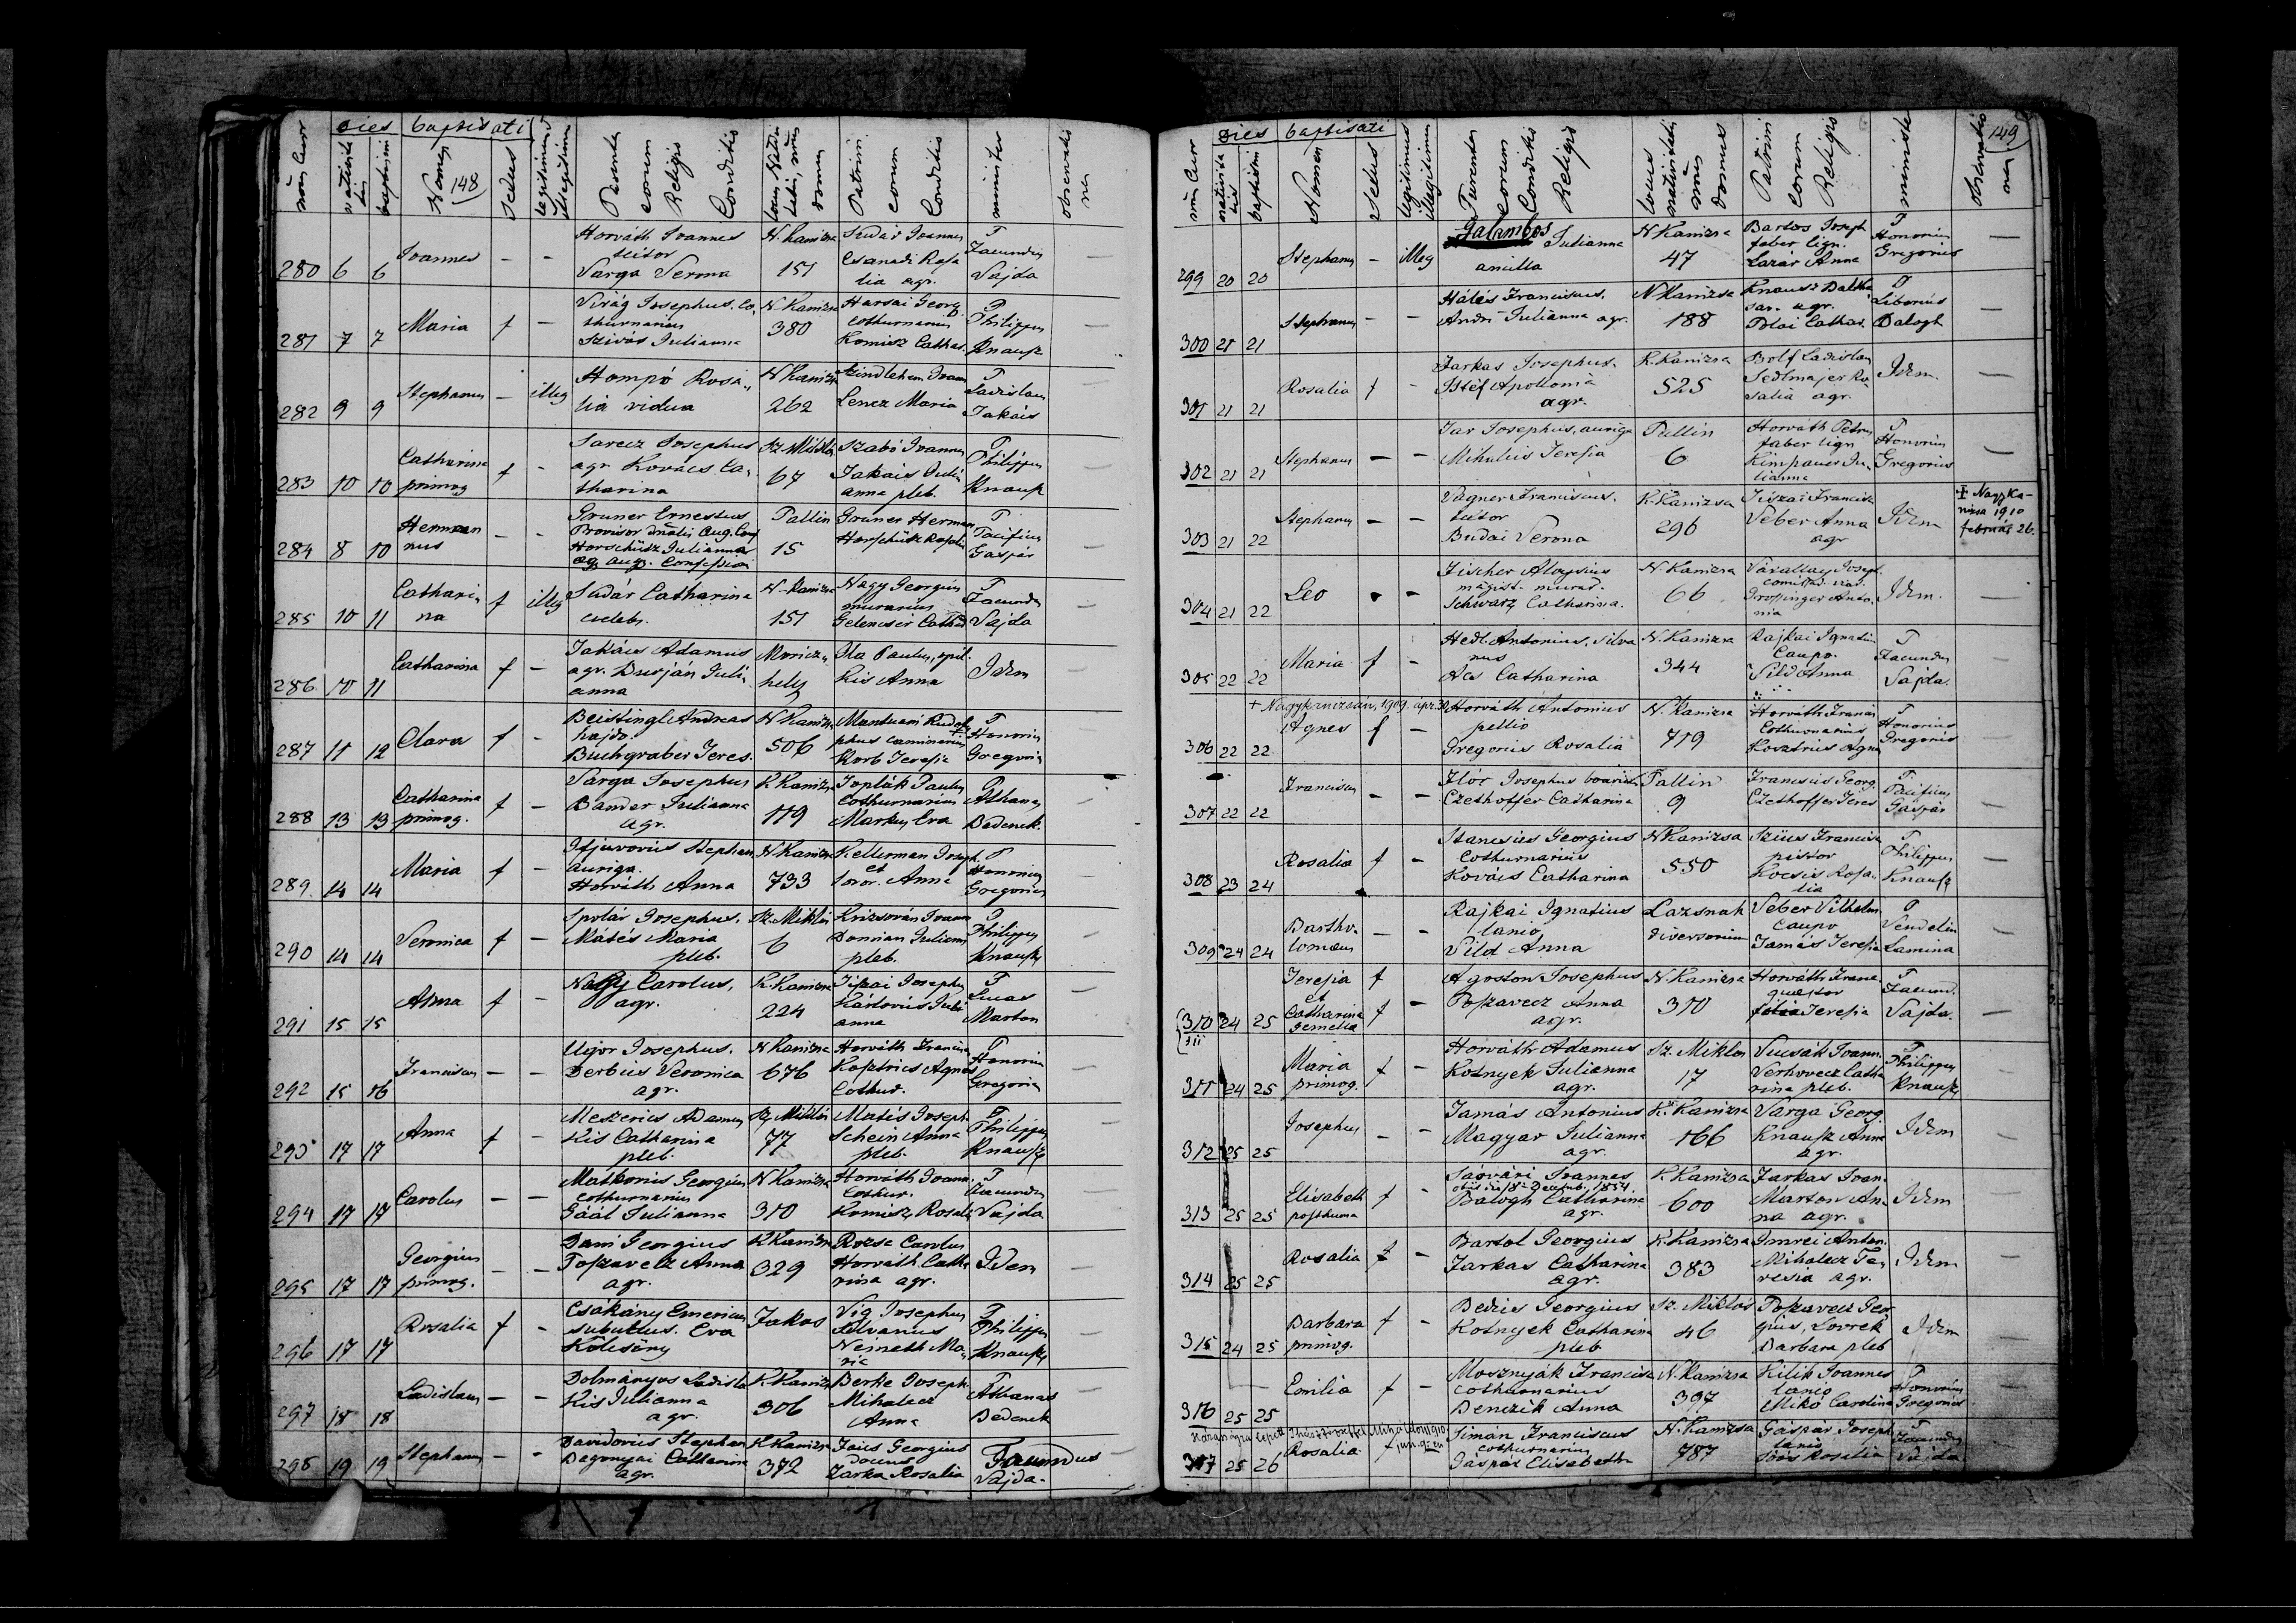 148
dies baptisati
num Curr
nativita
tis
baptismi
Nomen
Sexus
legitimus
illegitimus
Parentes
eorum
Religio
Conditio
Locus Nativi
tatis, nrus
domus
Patrini
eorum
Conditio
minister
observatio
nes
280 6 6 Joannes – –
Horváth Joannes
sutor
Varga Verona
N. Kanizsa
151
Sudár Joannes
Csanadi Rosa
lia agr.
P
Facundus
Vajda
281 7 7 Maria f –
Virág Josephus, co,
thurnarius
Szivós Julianna
N. Kanizsa
380
Harsai Georg
cothurnarius
Komisz Cathar.
P
Philippus
Knausz
282 9 9 Stephanus – illeg
Hompó Rosa,
lia vidua
N Kanizsa
262
Joann
Lencz Maria
P
Ladislaus
Takács
283 10 10 Catharina
primog
f –
Sarecz Josephus
agr. Kovács Ca,
tharina
Sz. Miklós
67
Szabó Joannes
Takács Juli
anna pleb.
P
Philippus
Knausz
284 8 10 Herman
nus
– –
Gruner Ernestus
Provisor dnalis Aug. Conf
Horschüsz Julianna
aug. Confession
Pallin
15
Gruner Herman
Horschütz Rosalia
P
Pacificus
Gaspár
285 10 11 Cathari
na
f illeg
Sudár Catharina
caelebs.
N. Kanizsa
151
Nagy Georgius
murarius
Gelencsir Cathar
P
Facundus
Vajda
286 10 11 Catharina f –
Takács Adamus
agr. Durján Juli,
anna
Moricz,
hely
Ila Paulus, opil.
Kis Anna
Idem
287 11 12 Clara f –
Beistingl Andreas
hajdo.
Buchgraber Teres.
N Kanizsa
506
Mantuani Rudol
phus caminarius
Korb Teresia
P
Honorius
Gregorics
288 13 13 Catharina
primog.
f –
Varga Josephus
Bander Julianna
agr.
K Kanizsa
119
Toplák Paulus
Cothurnarius
Markus Eva
P
Athanas
Bedenek.
289 14 14 Maria f –
Ifjurovics Stephan
auriga.
Horváth Anna
N Kanizsa
733
Kellerman Joseph
et
soror. Anna
P
Honorius
Gregorics
290 14 14 Veronica f –
Spolár Josephus,
Mátés Maria
pleb.
Sz. Miklós
6
Krizsován Joann
Domian Juliann
pleb.
P
Philippus
Knausz
291 15 15 Anna f –
Nagy Carolus,
agr.
K. Kanizsa
224
Tiszai Josephus
Károvics Juli
anna
P
Lucas
Marton
292 15 16 Franciscus – –
Ugor Josephus.
Derbics Veronica
agr.
N Kanizsa
676
Horváth Francisc
Kosztrics Agnes
Cothur.
P
Honorius
Gregorics
293 17 17 Anna f –
Meszerics Adamus
Kis Catharina
pleb.
Sz Miklós
77
Matés Joseph
Schein Anna
pleb.
P
Philippus
Knausz
294 17 17 Carolus – –
Matkovics Georgius
cothurnarius
Gáál Julianna
N Kanizsa
310
Horváth Joann.
Cothur.
Komisz Rosali
P
Facundus
Vajda
295 17 17 Georgius
primog.
– –
Dani Georgius
Poszavecz Anna
agr.
K Kanizsa
329
Rozsa Carolus
Horváth Catha
rina agr.
Idem
296 17 17 Rosalia f –
Csákány Emericus
subulcus. Eva
Kölcsény
Fakos
Vig Josephus
Silvanus
Nemeth Ma,
ria
P
Philippus
Knausz
297 18 18 Ladislaus – –
Dolmányos Ladisla
Kis Julianna
agr.
K Kanizsa
306
Berke Joseph.
Mihalecz
Anna
P
Athanas
Bedenek
298 19 19 Stephanus – –
Davidovics Stephan
Bagonyai Catharina
agr.
K Kanizsa
372
Georgius
Zarka Rosalia
Facundus
Vajda.
149
dies baptisati
num Curr
nativita
tis
baptismi
Nomen
Sexus
legitimus
illegitimus
Parentes
eorum
Conditio
Religio
locus
nativitatis
nrus
domus
Patrini
eorum
Religio
minister
observatio
nes
299 20 20 Stephanus – illeg
Galambos Julianna
ancilla
N Kanizsa
47
Bartos Joseph
faber lign.
Lazár Anna
P
Honorius
Gregorics
300 21 21 Stephanus – –
Hálás Franciscus.
Andri Julianna agr.
N Kanizsa
188
Knausz Baltha
sar. agr.
Blai Cathar.
P
Liborius
Balogh
301 21 21 Rosalia f –
Farkas Josephus.
Istéf Apollonia
agr.
K. Kanizsa
525
Bolf Ladislaus
Sedlmajer Ro
salia agr.
Idem.
302 21 21 Stephanus – –
Far Josephus, auriga
Mihalics Teresia
Pallin
6
Horváth Petrus
faber lign
Kimpaner Ju,
lianna
P
Honorius
Gregorics
303 21 22 Stephanus – –
Vagner Franciscus.
sutor
Budai Verona
K. Kanizsa
296
Tiszai Francisc
Veber Anna
agr
Idem
+ Nagyka-
nizsa 1910
február 26.
304 21 22 Leo – –
Fischer Aloysius
magist. murar.
Schwarz Catharina.
N Kanizsa
66
Várallay Joseph.
Anto,
nia
Idem.
305 22 22 Maria f –
Hedl Antonius, silva
nus
Acs Catharina
N. Kanizsa
344
Rajkai Ignatius
Caupo.
Vild Anna
P
Facundus
Vajda.
+ Nagykanizsán, 1909. ápr. 30
306 22 22 Agnes f –
Horváth Antonius
pellio
Gregorics Rosalia
N. Kanizsa
719
Horváth Francis
Cothurnarius
Kosztrics Agnes
P
Honorius
Gregorics
307 22 22 Franciscus – –
Flór Josephus boarius
Czethoffer Catharina
Pallin
9
Francsics Georg.
Czethoffer Teres
P.
Pacificus
Gaspár
308 23 24 Rosalia f –
Stancsics Georgius
Cothurnarius
Kovács Catharina
N Kanizsa
550
Szücs Francisc
pistor
Kocsis Rosa,
lia
P
Philippus
Knausz
309 24 24 Bartho,
lomaeus
– –
Rajkai Ignatius
lanio
Vild Anna
Lazsnak
diversorium
Veber Vilhelm
Caupo
Tamás Teresia
P
Vendelin
Lamina
310 24 25 Teresia
et
Catharina
gemella
f
f –
Agoston Josephus
Poszavecz Anna
agr.
N. Kanizsa
310
Horváth Franc.
quaestor
filia Teresia
P
Facund.
Vajda.
311 24 25 Maria
primog.
f –
Horváth Adamus
Kotnyek Julianna
agr.
Sz. Miklos
17
Vucsák Joann.
Verhovecz Catha
rina pleb.
P
Philippus
Knausz
312 25 25 Josephus – –
Tamás Antonius
Magyar Julianna
agr.
K. Kanizsa
166
Varga Georg.
Knausz Anna
agr.
Idem
313 25 25 Elisabeth
posthuma
f –
Sáovári Joannes
obiit die 18a Decemb. 1854
Balogh Catharina
agr.
K. Kanizsa
600
Farkas Joan.
Marton An,
na agr.
Idem
314 25 25 Rosalia f –
Bartol Georgius
Farkas Catharina
agr.
K. Kanizsa
383
Imrei Anton.
Mihalecz Te,
resia agr.
Idem
315 24 25 Barbara
primog.
f –
Bedics Georgius
Kotnyek Catharina
pleb
Sz. Miklós
46
Poszavecz Geor
gius, Lovrek
Barbara pleb
Idem
316 25 25 Emilia f –
Mosznyák Francisc
cothurnarius
Benczik Anna
N. Kanizsa
397
Kilik Joannes
lanio
Mikó Carolina
P
Honorius
Gregorics
317 25 26 Rosalia f –
Siman Franciscus
cothurnarius
Gaspár Elisabetha
N. Kanizsa
787
Gáspár Joseph
lanio
Soós Rosalia
P
Facundus
Vajda